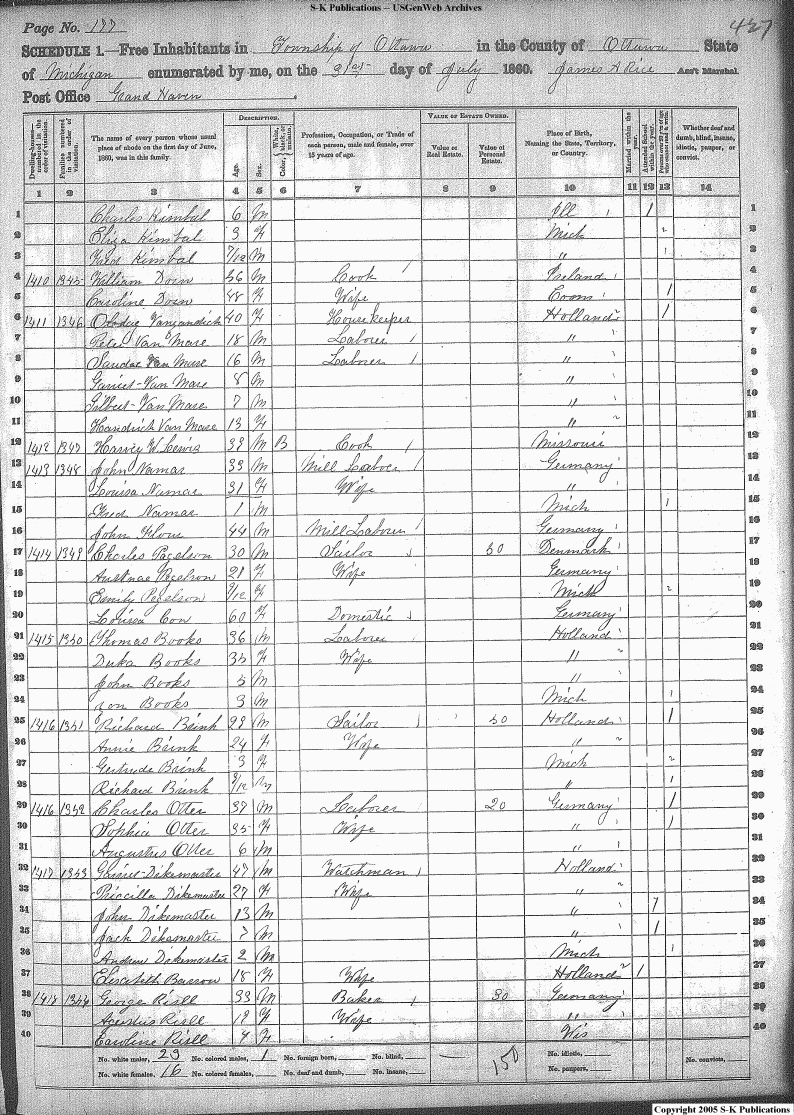 S-K Publications – USGenWeb Archives
Page No. 177
427
SCHEDULE 1.—Free Inhabitants in Township of Ottawa in the County of Ottawa State
of Michigan enumerated by me, on the 31st day of July 1860. James A Rice Ass't Marshal.
Post Office Grand Haven.
Dwelling-houses—numbered in the order of visitation.
Families numbered in the order of visitation.
The name of every person whose usual place of abode on the first day of June, 1860, was in this family.
DESCRIPTION.
Age.
Sex.
Color, White, black, or mulatto.
Profession, Occupation, or Trade of each person, male and female, over 15 years of age.
VALUE OF ESTATE OWNED.
Value of Real Estate.
Value of Personal Estate.
Place of Birth, Naming the State, Territory, or Country.
Married within the year.
Attended School within the year.
Persons over 20 y'rs of age who cannot read & write.
Whether deaf and dumb, blind, insane, idiotic, pauper, or convict.
1 2 3 4 5 6 7 8 9 10 11 12 13 14
1 Charles Kimbal 6 M Ill / 1 1
2 Eliza Kimbal 3 F Mich 2
3 Fred Kimbal 7/12 M " 3
4 1410 1345 William Dorn 56 M Cook / Ireland 4
5 Caroline Dorn 48 F Wife Conn 1 5
6 1411 1346 40 F Housekeeper Holland 1 6
7 Peter Van Mare 18 M Laborer / " 7
8 Van Mare 16 M Laborer / " 8
9 Van Mare 8 M " 9
10 Gilbert Van Mare 7 M " 10
11 Handrick Van Mare 13 F " 11
12 1412 1347 Harvey W Lewis 39 M B Cook / Missouri 12
13 1413 1348 John Namar 33 M Mill Laborer / Germany 13
14 Louisa Namar 31 F Wife " 14
15 Fred Namar 1 M Mich 15
16 John 44 M Mill Laborer / Germany 16
17 1414 1349 Charles Pegelson 30 M Sailor 50 Denmark 17
18 Pegelson 21 F Wife Germany 18
19 Emily Pegelson 9/12 F Mich 19
20 Louisa 60 F Domestic Germany 20
21 1415 1350 Thomas Books 36 M Laborer Holland 21
22 Books 35 F Wife " 22
23 John Books 5 M " 23
24 Books 3 M Mich 24
25 1416 1351 Richard Brink 29 M Sailor / 50 Holland 1 25
26 Annie Brink 24 F Wife " 26
27 Gertrude Brink 3 F Mich 27
28 Richard Brink M " 28
29 1416 1352 Charles Otter 37 M Laborer 20 Germany 1 29
30 Sophia Otter 35 F Wife " 1 30
31 Augustus Otter 6 M " 31
32 1417 1353 Garret Dikemaster 47 M Watchman / Holland 32
33 Priscilla Dikemaster 27 F Wife " 33
34 John Dikemaster 13 M " 1 34
35 Jack Dikemaster 7 M " 1 35
36 Andrew Dikemaster 2 M Mich 36
37 Elisabeth Barrow 18 F Wife Holland 1 37
38 1418 1354 George Risll 33 M Baker / 30 Germany 38
39 Risll 19 F Wife " 39
40 Caroline Risll 4 F Wis 40
No. white males, 23 No. colored males, 1 No. foreign born, No. blind, 150 No. idiotic, No. convicts,
No. white females, 16 No. colored females, No. deaf and dumb, No. insane, No. paupers,
Copyright 2005 S-K Publications